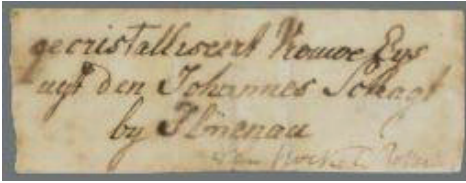 gecristalliseert Vrouwe Eys
uyt den Johannes Schagt
by Ilmenau